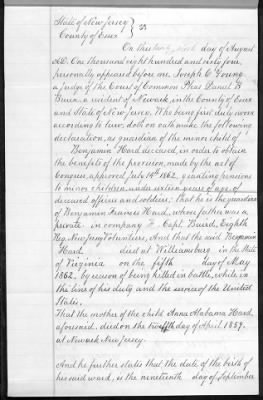 State of New Jersey } SS
County of Essex
On this twenty sixth day of August
A.D. One thousand eight hundred and sixty four,
personally appeared before me, Joseph C Young
a Judge of the Court of Common Pleas Daniel B
Bruen, a resident of Newark, in the County of Essex
and State of New Jersey. Who being first duly sworn
according to law, doth on oath make the following
declaration, as guardian of the minor child of
Benjamin Hard deceased, in order to obtain
the benefits of the provision, made by the act of
Congress, approved July 14th 1862, granting pensions
to minor children, under sixteen years of age, of
deceased officers and soldiers; that he is the guardian
of Benjamin Francis Hard, whose father was a
private in company F. Capt. Baird, Eighth
Reg. New Jersey Volunteers, And that the said Benjamin
Hard died at Williamsburg in the State
of Virginia on the fifth day of May
1862, by reason of being killed in battle, while in
the line of his duty and the service of the United
States.
That the mother of the child Anna Alabama Hard
aforesaid, died on the twelfth day of April 1859.
at Newark New Jersey.
And he further states that the date of the birth of
his said ward, is the nineteenth day of September